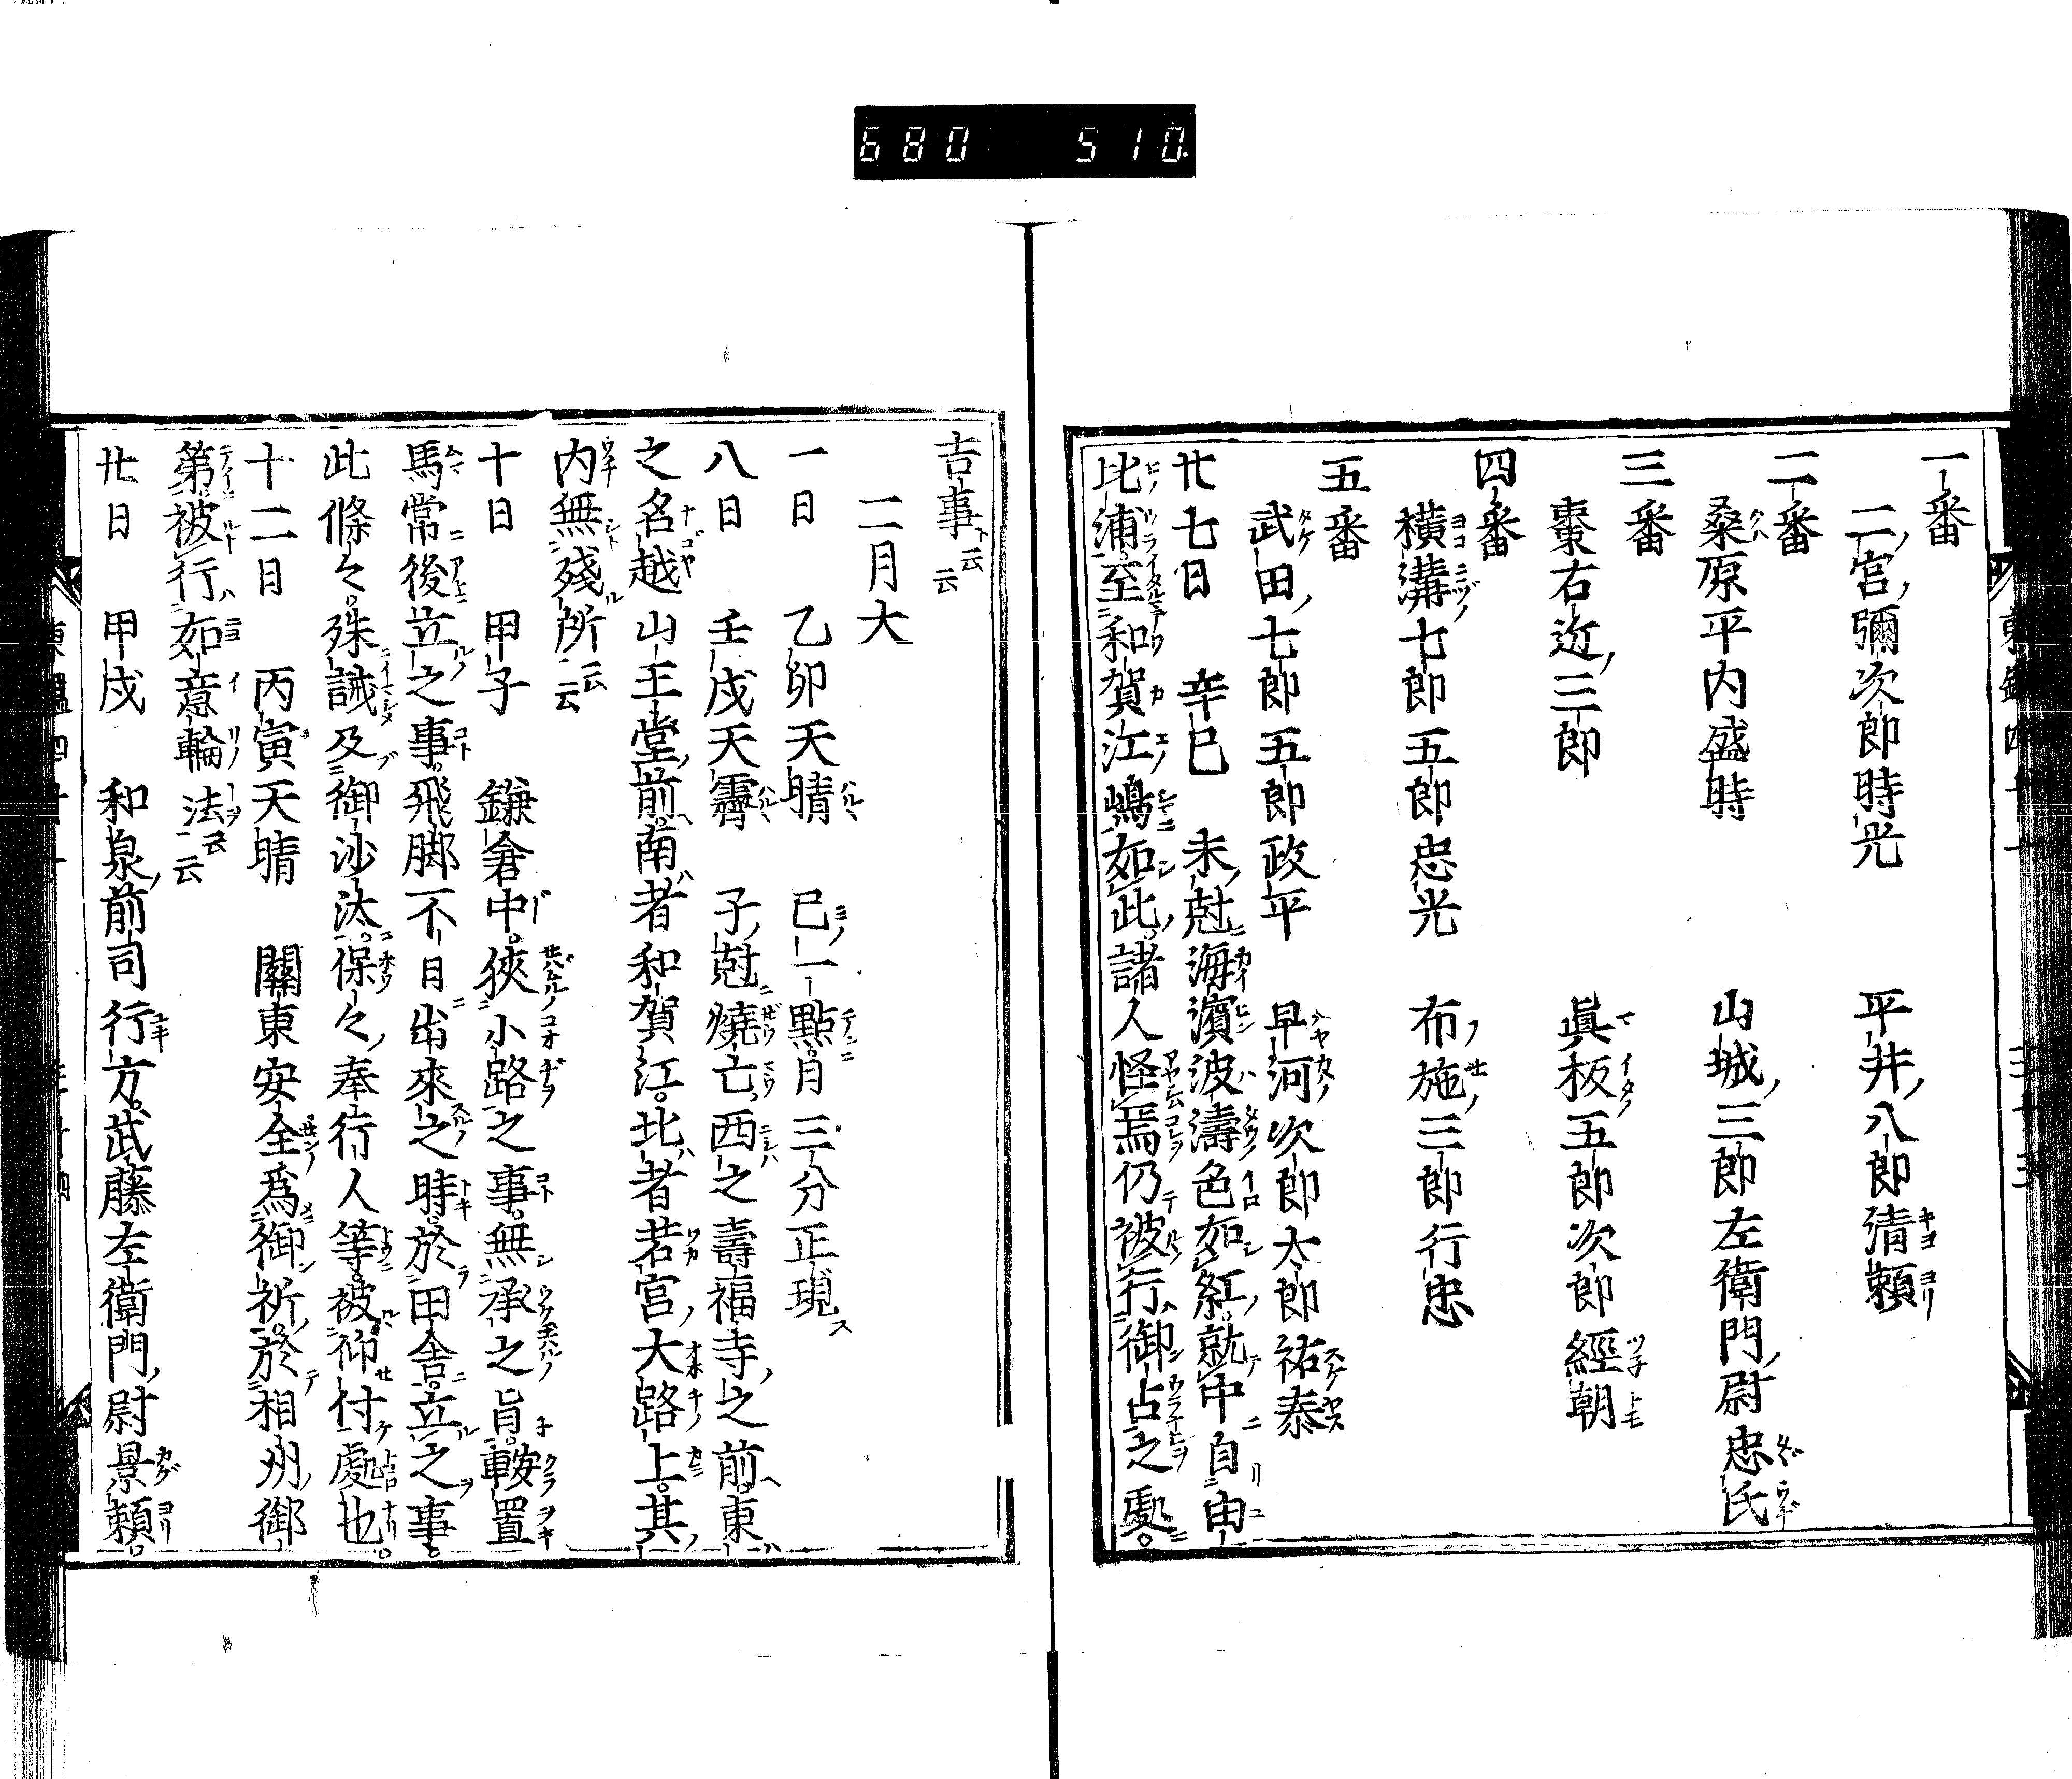 680 510
一番
二宮彌次郎時光 平井八郎清頼
二番
桑原平内盛時 山城三郎左衛門尉忠氏
三番
棗右近三郎 眞板五郎次郎經朝
四番
横溝七郎五郎忠光 布施三郎行忠
五番
武田七郎五郎政平 早河次郎太郎祐泰
廿七日 辛巳 未尅海濱波濤色如紅就中自由
比浦至和賀江嶋如此諸人怪焉仍被行御占之處
吉事云云
二月大
一日 乙卯天晴 巳一點月三分正現
八日 壬戌天霽 子尅燒亡西之壽福寺之前東
之名越山王堂前南者和賀江北者若宮大路上其
内無殘所云云
十日 甲子 鎌倉中狹小路之事無承之旨鞍置
馬常後立之事飛脚不日出來之時於田舎立之事
此條々殊誡及御沙汰保々奉行人等被仰付處也
十二日 丙寅天晴 關東安全爲御祈於相州御
第被行如意輪法云云
廿日 甲戌 和泉前司行方武藤左衛門尉景頼